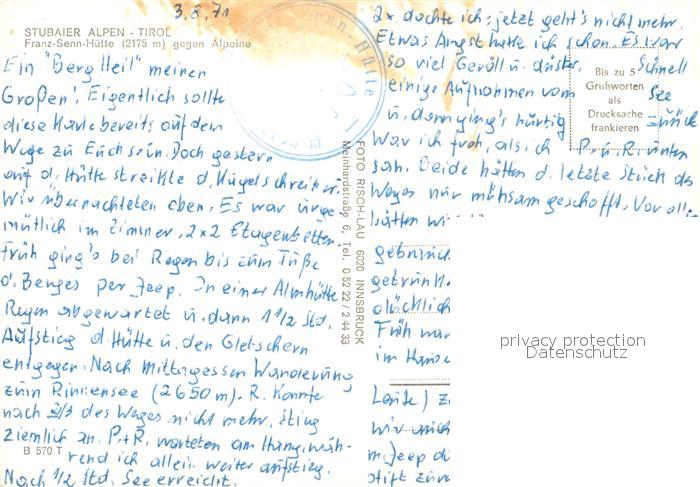 3.8.71
STUBAIER ALPEN - TIROL
Franz-Senn-Hütte (2175 m) gegen Alpeine
Ein "Berg Heil" meinen
Großen! Eigentlich sollte
diese Karte bereits auf dem
Wege zu Euch sein. Doch gestern
auf d. Hütte streikte d. Kugelschreiber.
Wir übernachteten oben. Es war urge-
mütlich im Zimmer, 2x2 Etagenbetten.
Früh ging's bei Regen bis zum Fuße
d. Berges per Jeep. In einer Almhütte
Regen abgewartet u. dann 1 1/2 Std.
Aufstieg d. Hütte u. den Gletschern
entgegen. Nach Mittagessen Wanderung
zum Rinnensee (2650 m). R. konnte
nach 2/3 des Weges nicht mehr. Stieg
ziemlich an. P.+R. warteten am Hang, wäh-
rend ich allein weiter aufstieg.
Nach 1/2 Std. See erreicht.
B 570 T
FOTO RISCH-LAU 6020 INNSBRUCK
Meinhardstraße 6, Tel. 0 52 22 / 2 44 33
2x dachte ich: jetzt geht's nicht mehr.
Etwas Angst hatte ich schon. Es war
so viel Geröll u. düster. Schnell
einige Aufnahmen vom See
u. dann ging's hurtig zurück
Bis zu 5
Grußworten
als
Drucksache
frankieren
War ich froh, als ich P. u. R. unten
sah. Beide hatten d. letzte Stück des
Weges nur mühsam geschafft. Vor all
hätten wi
getrunk
glücklich
Früh war
im Hause
Leute) z
wir
m. Jeep du
stift zur
privacy protection
Datenschutz